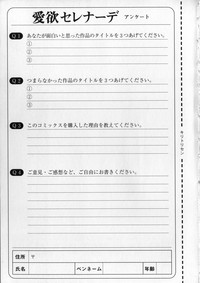 愛欲セレナーデ アンケート
Q1 あなたが面白いと思った作品のタイトルを3つあげてください。
①
②
③
Q2 つまらなかった作品のタイトルを3つあげてください。
①
②
③
Q3 このコミックスを購入した理由を教えてください。
Q4 ご意見・ご感想など、ご自由にお書きください。
キリトリセン
住所 〒
氏名 ペンネーム 年齢